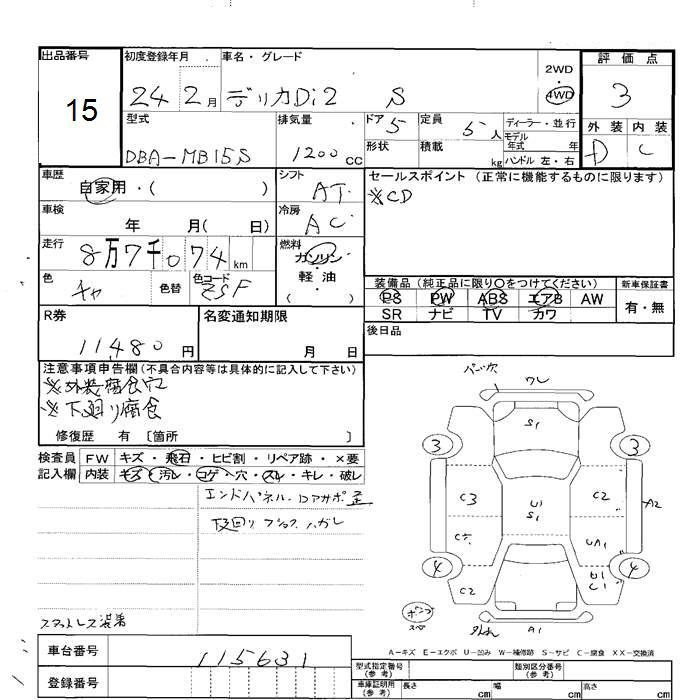 出品番号 初度登録年月 車名・グレード 評価点
15 24 2月 デリカDi2 S 2WD 4WD 3
型式 排気量 ドア 5 定員 5人 ディーラー・並行 外装 内装
DBA-MB15S 1200cc 形状 積載 kg モデル年式 年 D C
ハンドル 左・右
車歴 シフト セールスポイント (正常に機能するものに限ります)
自家用・( ) AT ※CD
車検 年 月( 日) 冷房 AC
走行 8万7千074km 燃料 ガソリン・軽油 ( )
色 チャ 色替 色コード ZSF
装備品 (純正品に限り○をつけてください) 新車保証書
PS PW ABS エアB AW 有・無
SR ナビ TV カワ
R券 11,480円 名変通知期限 月 日 後日品
注意事項申告欄 (不具合内容等は具体的に記入して下さい)
※外装腐食穴
※下廻り腐食
修復歴 有 〔箇所 〕
検査員 FW キズ・飛石・ヒビ割・リペア跡・×要
記入欄 内装 キズ・汚レ・コゲ・穴・スレ・キレ・破レ
エンドパネル・
下回り ハガレ
ワレ
S1
3 3
C3 U1 S1 C2 A2
UA1
4 4
C2 U1 C1
A1
A-キズ E-エクボ U-凹み W-補修跡 S-サビ C-腐食 XX-交換済
車台番号 115631
登録番号
型式指定番号 (参考) 類別区分番号 (参考)
車庫証明用 (参考) 長さ cm 幅 cm 高さ cm